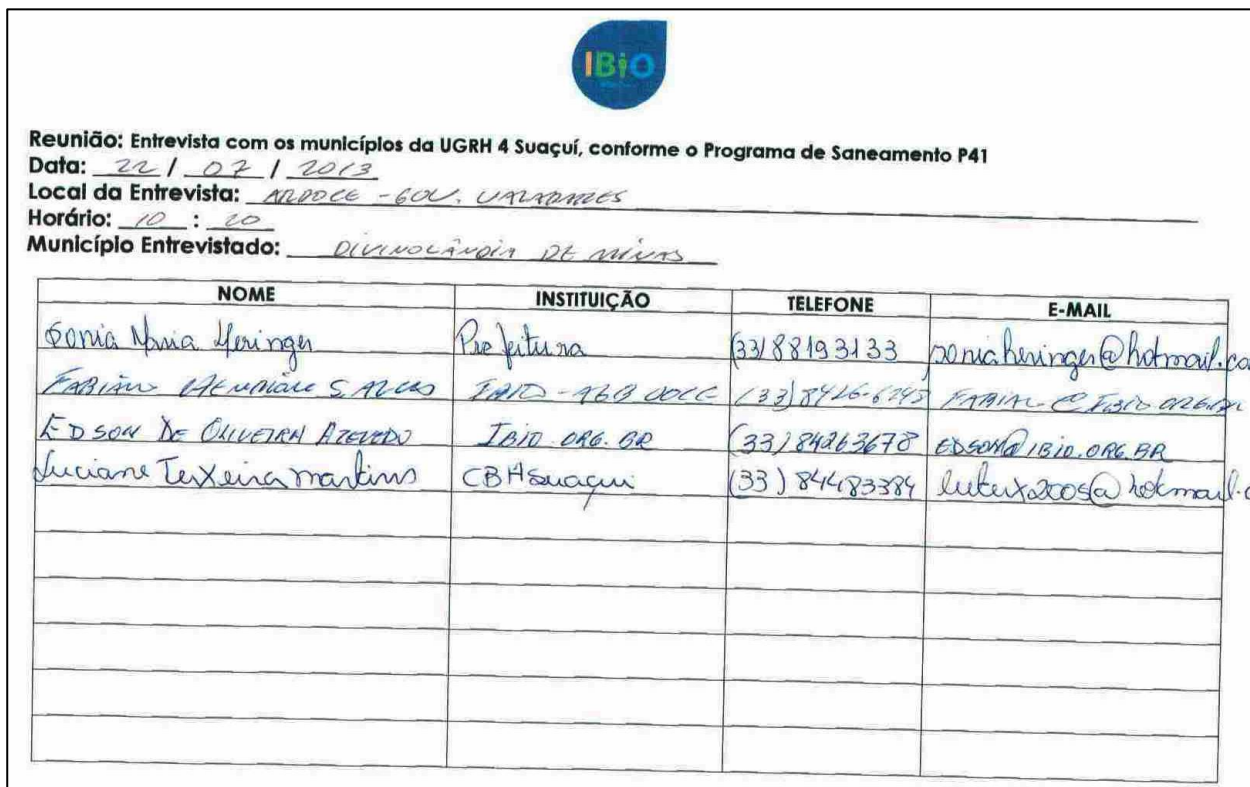 IBiO
Reunião: Entrevista com os municípios da UGRH 4 Suaçuí, conforme o Programa de Saneamento P41
Data: 22 / 07 / 2013
Local da Entrevista: ARDOCE - GOV. VALADARES
Horário: 10 : 20
Município Entrevistado: DIVINOLÂNDIA DE MINAS
NOME INSTITUIÇÃO TELEFONE E-MAIL
Sonia Maria Heringer Prefeitura (33) 88193133 soniaheringer@hotmail.co
FABIANO S. ALVES IBIO - AGB DOCE (33)
EDSON DE OLIVEIRA AZEVEDO IBIO.ORG.BR (33) 84263678 EDSON@IBIO.ORG.BR
Luciane Teixeira martins CBHSuaçui (33) 84483384 luteix2005@hotmail.c